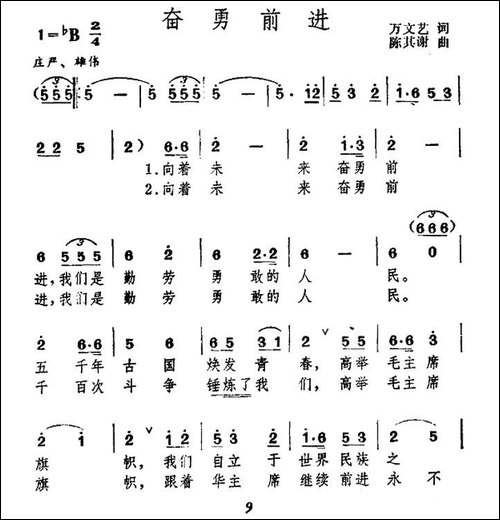 奋勇前进
1=♭B 2/4
万文艺 词
陈其谢 曲
庄严、雄伟
(555 5 — 5 5 555 5 — 5·12 532 1·6 53
225 2) 6·6 2 — 2 1·3 2 2
1.向着 未 来 奋勇 前
2.向着 未 来 奋勇 前
(666)
6 555 6 2 6 2·2 6 — 6 0
进,我们是 勤 劳 勇 敢的 人 民。
进,我们是 勤 劳 勇 敢的 人 民。
2 6·6 5 6 65 31 2 55 6·6 3
五 千年 古 国 焕发 青 春,高举 毛主 席
千 百次 斗 争 锤炼了我 们,高举 毛主 席
2 1 2 12 53 2 1·6 56 2
旗 帜,我们 自立 于 世界 民族 之
旗 帜,跟着 华主 席 继续 前进 永 不
9